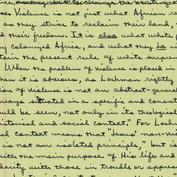 as Violence is not just what Africa
as they strive to reclaim their land,
their freedom. It is also what white, p
colonized Africa, and what they do
the present rule of white supre
When the problem of violence is placed in
it is obvious, as Lochman rightly
of violence is not an abstract-gener
always situated in a specific and concret
be seen, not only in its theological
historical and social context." For
context means that "Jesus' nonv
is not an isolated principle," but
with the main purpose of His life and
with those in trouble or oppres